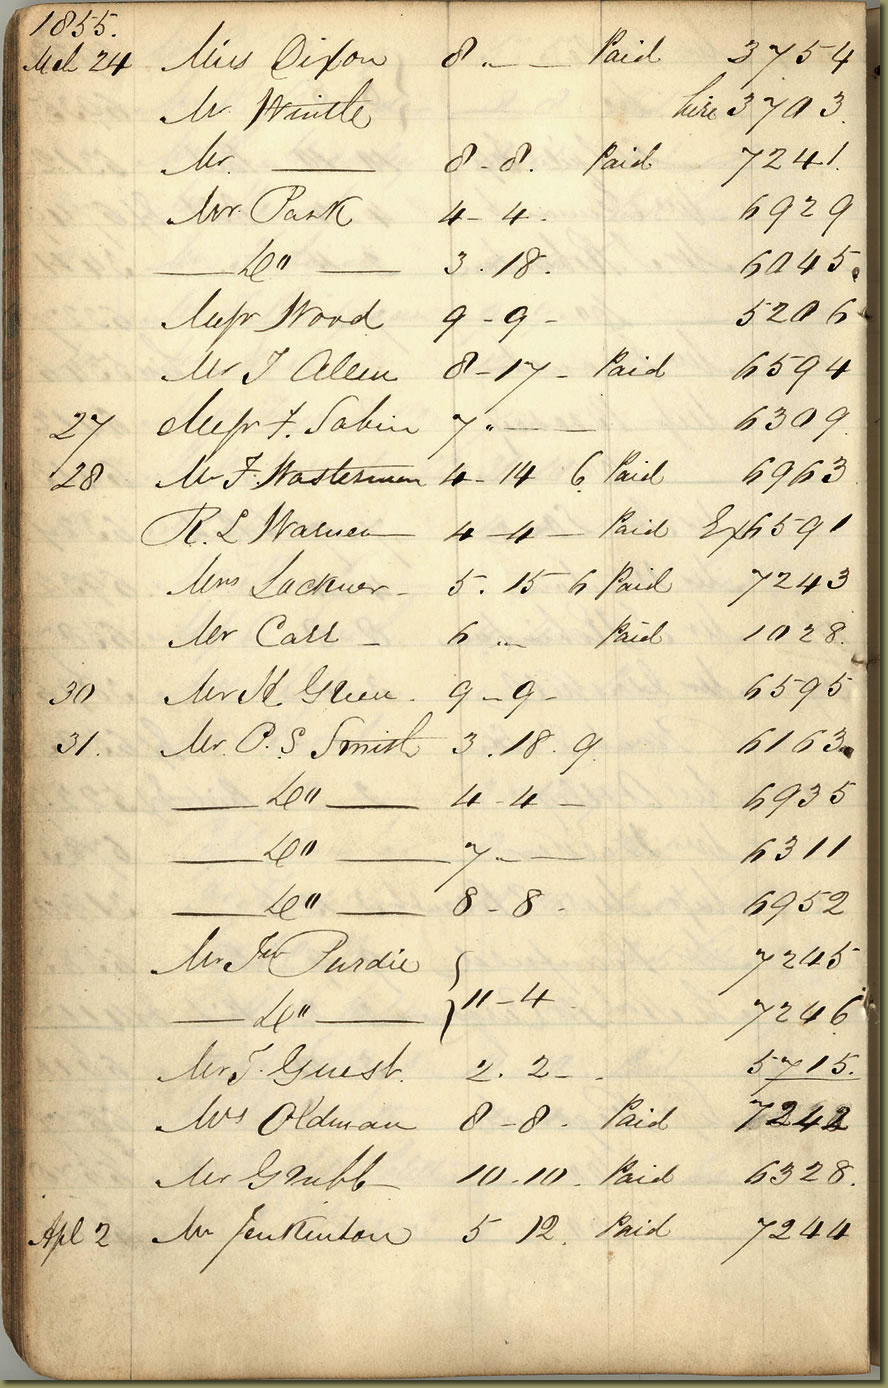 1855.
Mch 24 Miss Dixon 8 „ — — Paid 3754
Mr Wintle hire 3703.
Mr. —— 8 - 8. Paid 7241.
Mr. Park 4 - 4. 6929
—— Do" —— 3 . 18. 6045.
Messr Wood 9 - 9 - 5206
Mr J Allen 8 - 17 - Paid 6594
27 Messr F. Sabin 7 " — — 6309.
28 Mr F. Wasterman 4 - 14 6 Paid 6963
R. L Warner — 4 - 4 — Paid Ex 6591
Mrs Lockner - 5. 15 6 Paid 7243
Mr Carr - 6 „ Paid 1028.
30 Mr H. Green - 9 - 9 - 6595
31. Mr. P. S Smith 3 . 18. 9. 6163.
—— Do" —— 4 - 4 — 6935
—— Do" —— 7 „ — 6311
—— Do" —— 8 - 8 - 6952
Mr Jas Purdie { 7245
—— Do" —— 11 - 4 . 7246
Mr J. Guest. 2. 2 - . 5715.
Mrs Oldman 8 - 8. Paid 7242
Mr Grubb 10.10. Paid 6328.
Apl 2 Mr Jenkinton 5 12. Paid 7244